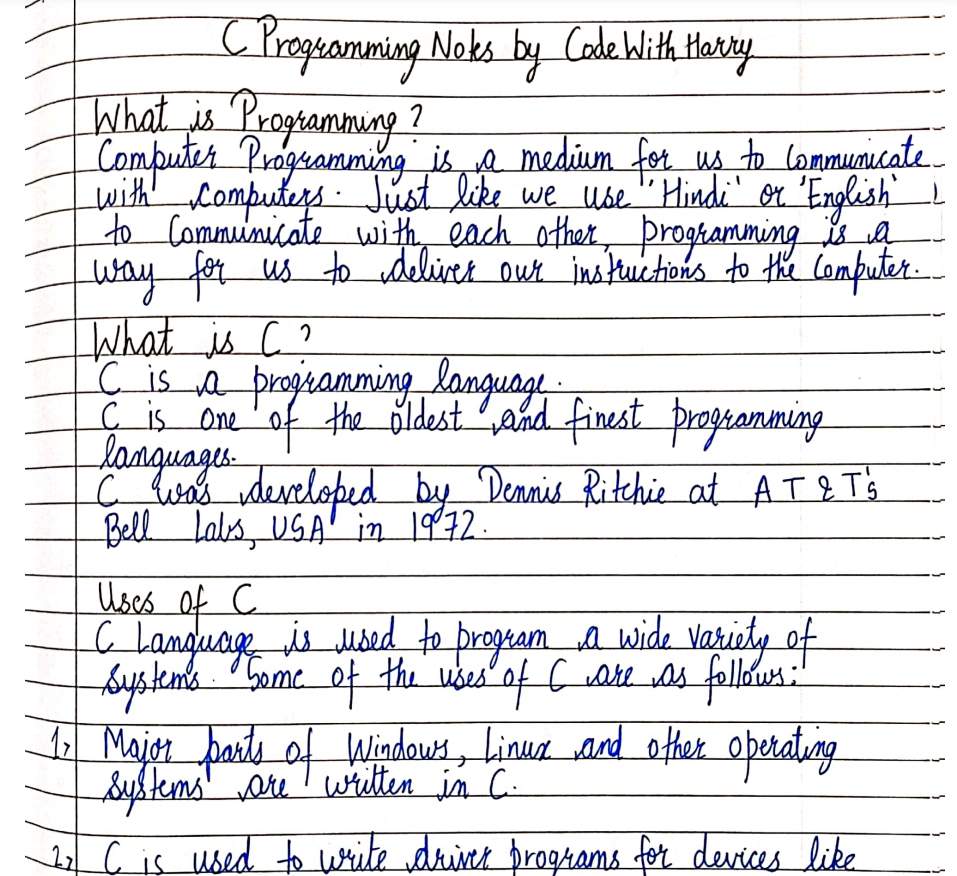 C Programming Notes by Code With Harry
What is Programming?
Computer Programming is a medium for us to Communicate
with computers. Just like we use "Hindi" or 'English'
to Communicate with each other, programming is a
way for us to deliver our instructions to the Computer.
What is C?
C is a programming language.
C is one of the oldest and finest programming
languages.
C was developed by Dennis Ritchie at AT&T's
Bell Labs, USA in 1972.
Uses of C
C Language is used to program a wide variety of
systems. Some of the uses of C are as follows:
1> Major parts of Windows, Linux and other operating
systems are written in C.
2> C is used to write driver programs for devices like